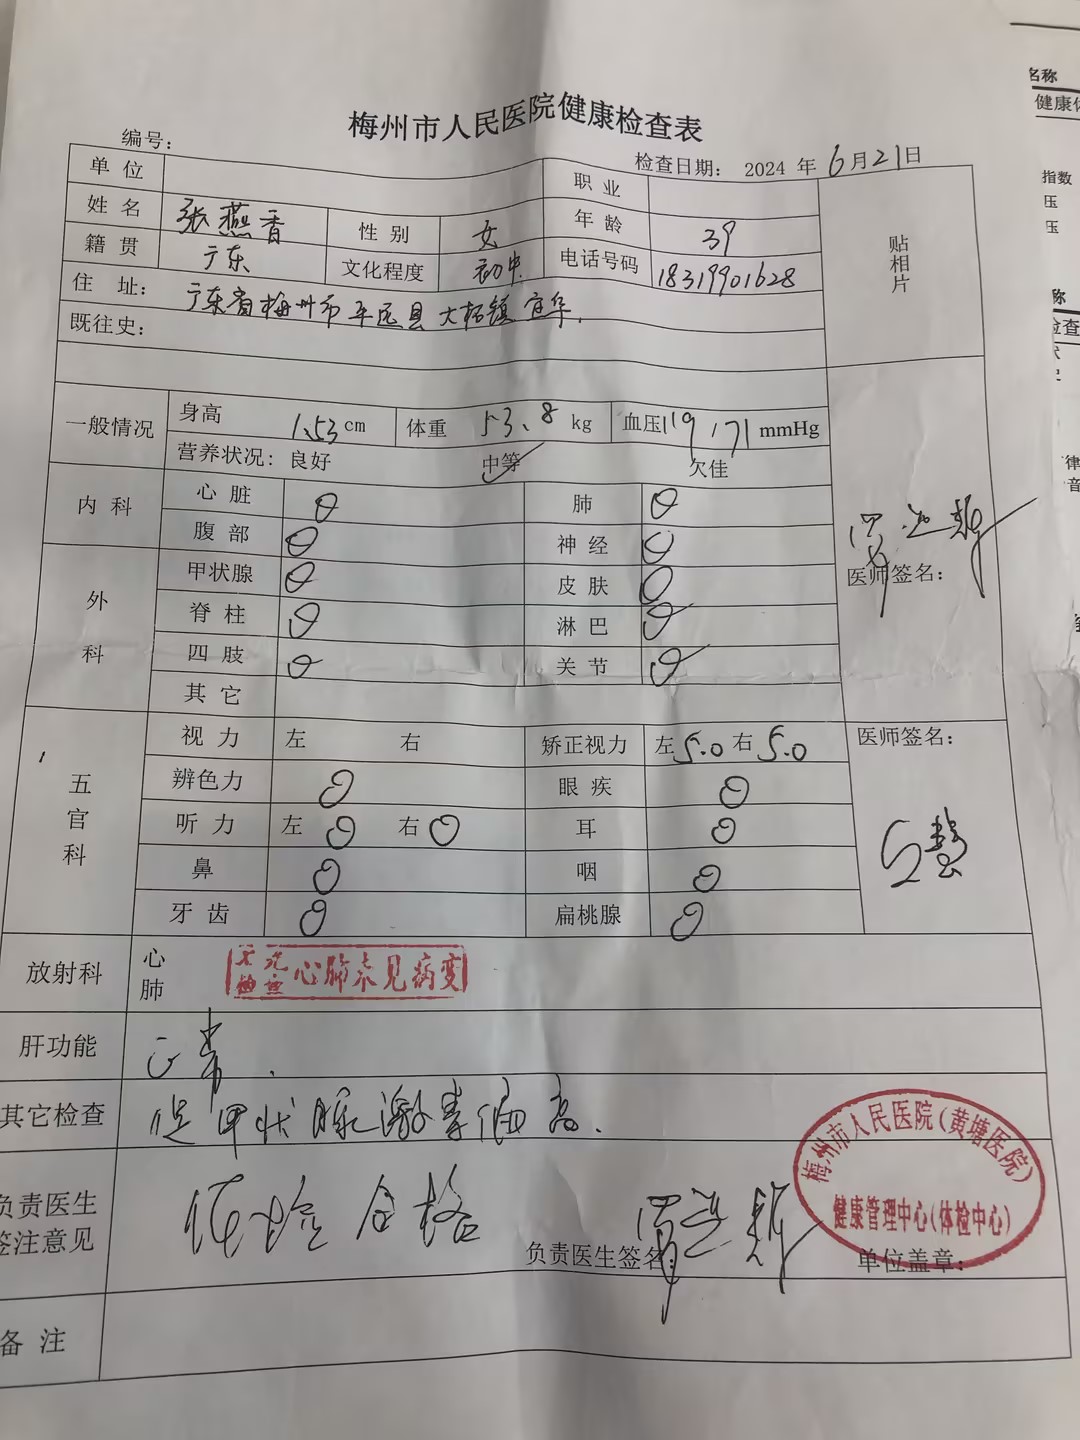 梅州市人民医院健康检查表
编号：
检查日期： 2024 年 6月21日
单 位 职 业
姓 名 张燕香 性 别 女 年 龄 39
籍 贯 广东 文化程度 初中 电话号码 18319901628
贴相片
住 址： 广东省梅州市平远县大柘镇宜华.
既往史：
一般情况 身高 1.53cm 体重 53.8 kg 血压119/71mmHg
营养状况：良好 中等 欠佳
内 科 心 脏 肺
腹 部 神 经
外科 甲状腺 皮 肤
医师签名：
脊 柱 淋 巴
四 肢 关 节
其 它
五官科 视 力 左 右 矫正视力 左5.0右5.0 医师签名：
辨色力 眼 疾
听 力 左 右 耳
鼻 咽
牙 齿 扁桃腺
放射科 心肺 心肺未见病变
肝功能 正常.
其它检查 促甲状腺激素偏高.
负责医生签注意见 体检合格 负责医生签名 单位盖章：
梅州市人民医院(黄塘医院)
健康管理中心(体检中心)
备 注
名称
健康体
指数
压
压
称
检查
律
音